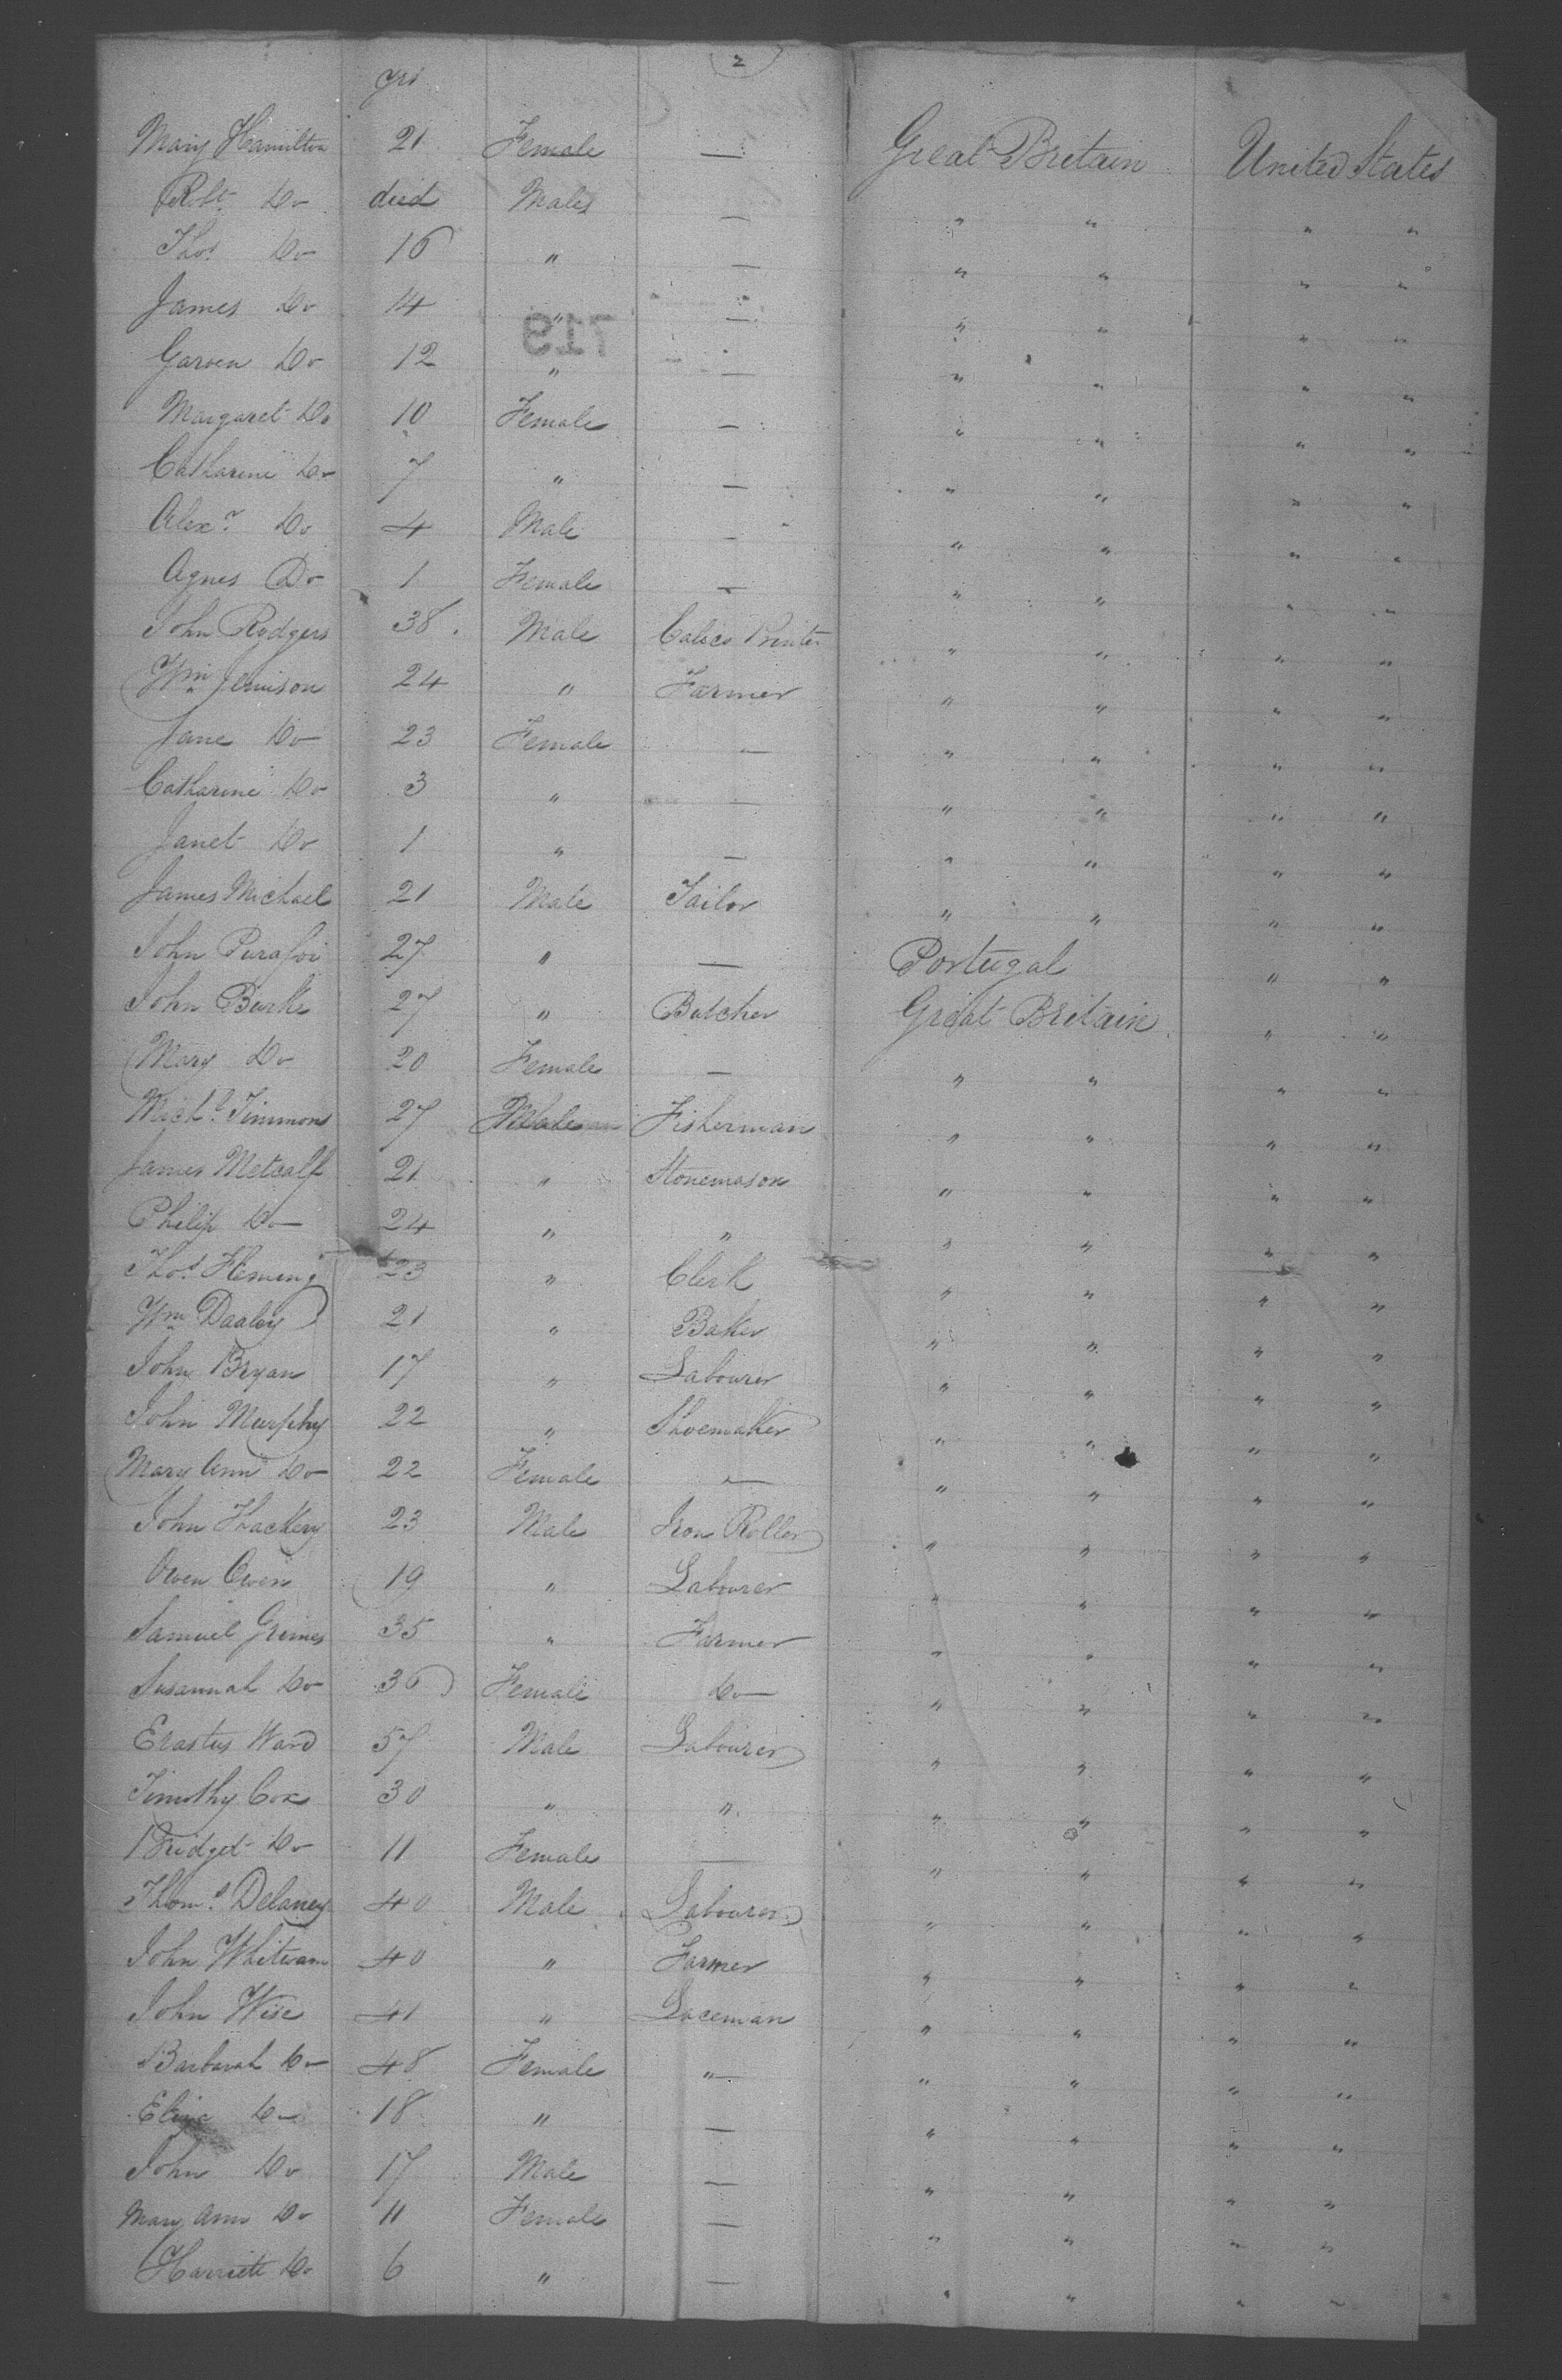 2
yrs
Mary Hamilton 21 Female — Great Britain United States
Robt. Do died Males — " " " "
Thos. Do 16 " — " " " "
James Do 14 " — " " " "
719
Garven Do 12 " — " " " "
Margaret Do 10 Female — " " " "
Catharine Do 7 " — " " " "
Alexr. Do 4 Male — " " " "
Agnes Do 1 Female — " " " "
John Rodgers 38. Male Calico Printer " " " "
Wm Jemison 24 " Farmer " " " "
Jane Do 23 Female — " " " "
Catharine Do 3 " — " " " "
Janet Do 1 " — " " " "
James Michael 21 Male Tailor " " " "
John 27 " — Portugal " "
John Burke 27 " Butcher Great Britain " "
Mary Do 20 Female — " " " "
Michl. Timmons 27 Male Fisherman " " " "
James Metcalf 21 " Stonemason " " " "
Philip Do 24 " " " " " "
Thos. Fleming 23 " Clerk " " " "
Wm Daaley 21 " Baker " " " "
John Bryan 17 " Labourer " " " "
John Murphy 22 " Shoemaker " " " "
Mary Ann Do 22 Female — " " " "
John Hackery 23 Male Iron Roller " " " "
Owen Owen 19 " Labourer " " " "
Samuel Grimes 35 " Farmer " " " "
Susannah Do 36 Female Do " " " "
Erastus Ward 57 Male Labourer " " " "
Timothy Cox 30 " " " " " "
Bridget Do 11 Female — " " " "
Thoms. Delaney 40 Male Labourer " " " "
John Whitwam 40 " Farmer " " " "
John Wise 41 " Laceman " " " "
Barbarah Do 48 Female " " " " "
Eliza Do 18 " — " " " "
John Do 17 Male — " " " "
Mary Ann Do 11 Female — " " " "
Harriett Do 6 " — " " " "